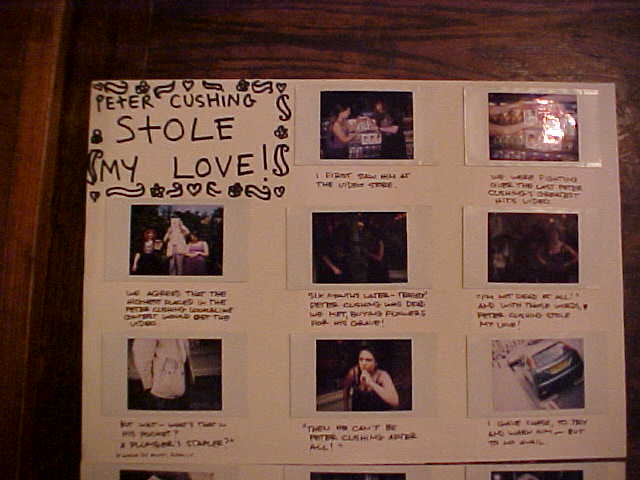 PETER CUSHING
STOLE
MY LOVE!
I FIRST SAW HIM AT
THE VIDEO STORE.
WE WERE FIGHTING
OVER THE LAST PETER
CUSHING'S GREATEST
HITS VIDEO
WE AGREED THAT THE
HIGHEST PLACED IN THE
PETER CUSHING LOOKALIKE
CONTEST WOULD GET THE
VIDEO
SIX MONTHS LATER - TRAGEDY!
PETER CUSHING WAS DEAD.
WE MET, BUYING FLOWERS
FOR HIS GRAVE!
"I'M NOT DEAD AT ALL!"
AND WITH THOSE WORDS,
PETER CUSHING STOLE
MY LOVE!
BUT WAIT - WHAT'S THAT IN
HIS POCKET?
A PLUMBER'S STAPLER?*
"THEN HE CAN'T BE
PETER CUSHING AFTER
ALL!"
I GAVE CHASE, TO TRY
AND WARN HIM - BUT
TO NO AVAIL.